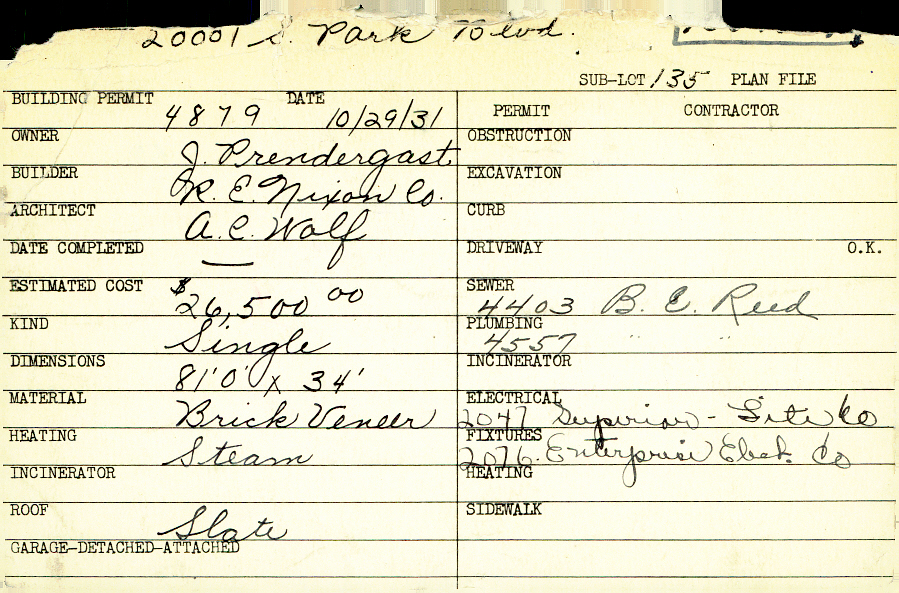 20001 S. Park Blvd.
SUB-LOT 135 PLAN FILE
BUILDING PERMIT 4879 DATE 10/29/31
OWNER J. Prendergast
BUILDER R. E. Nixon Co.
ARCHITECT A. C. Wolf
DATE COMPLETED —
ESTIMATED COST $26,500 00
KIND Single
DIMENSIONS 81'0" x 34'
MATERIAL Brick Veneer
HEATING Steam
INCINERATOR
ROOF Slate
GARAGE-DETACHED-ATTACHED
PERMIT CONTRACTOR
OBSTRUCTION
EXCAVATION
CURB
DRIVEWAY O.K.
SEWER 4403 B. E. Reed
PLUMBING 4557 " "
INCINERATOR
ELECTRICAL 2047 Superior-Lite Co
FIXTURES 2076. Enterprise Elect. Co
HEATING
SIDEWALK